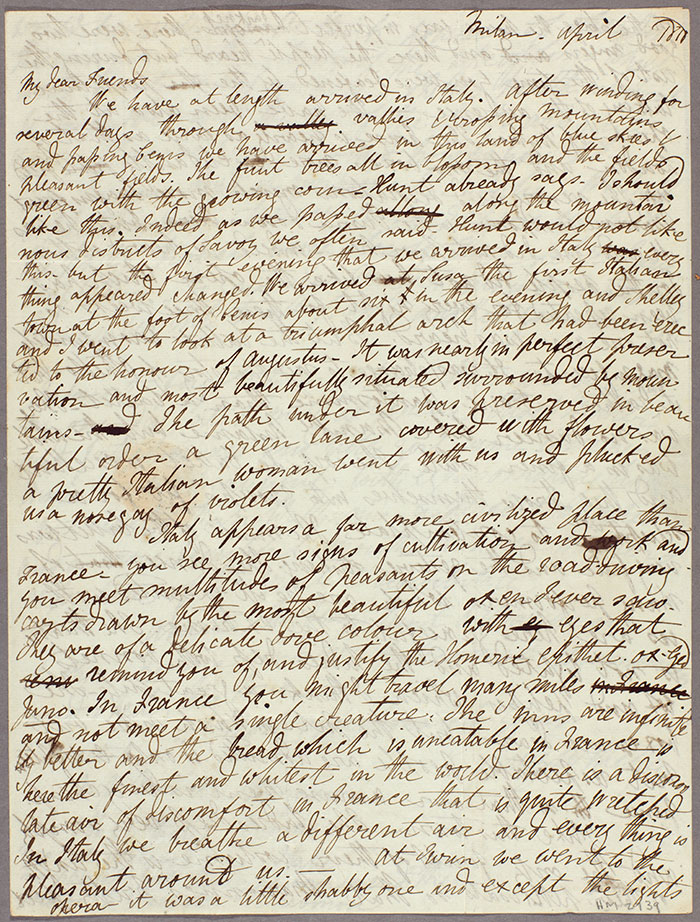 Milan - April
My dear Friends
We have at length arrived in Italy. After winding for
several days through a valley vallies & crossing mountains
and passing Cenis we have arrived in this land of blue skies &
pleasant fields. The fruit trees all in blossom and the fields
green with the growing corn - Hunt already says - I should
like this. Indeed as we passed allong along the mountai
nous districts of Savoy we often said - Hunt would not like
this - but the first evening that we arrived in Italy was every
thing appeared changed. We arrived at Susa the first Italian
town at the foot of Cenis about six in the evening and Shelley
and I went to look at a triumphal arch that had been erec
ted to the honour of Augustus - It was nearly in perfect preser
vation and most beautifully situated surrounded by moun
tains - and The path under it was preserved in beau
tiful order a green lane covered with flowers
a pretty Italian woman went with us and plucked
us a nosegay of violets.
Italy appears a far more civilized place than
France - you see more signs of cultivation and work and
you meet multitudes of peasants on the road - driving
carts drawn by the most beautiful oxen I ever saw -
They are of a delicate dove colour with ey eyes that
remind you of and justify the Homeric epithet - ox-eyed
Juno. In France you might travel many miles in France
and not meet a single creature - The inns are infinite
ly better and the bread which is uneatable in France is
here the finest and whitest in the world. There is a disconso
late air of discomfort in France that is quite wretched
In Italy we breathe a different air and every thing is
pleasant around us. — At Turin we went to the
opera - it was a little shabby one and except the lights
HM 2739